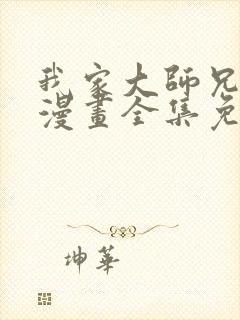 我家大師兄
漫畫全集免
坤華